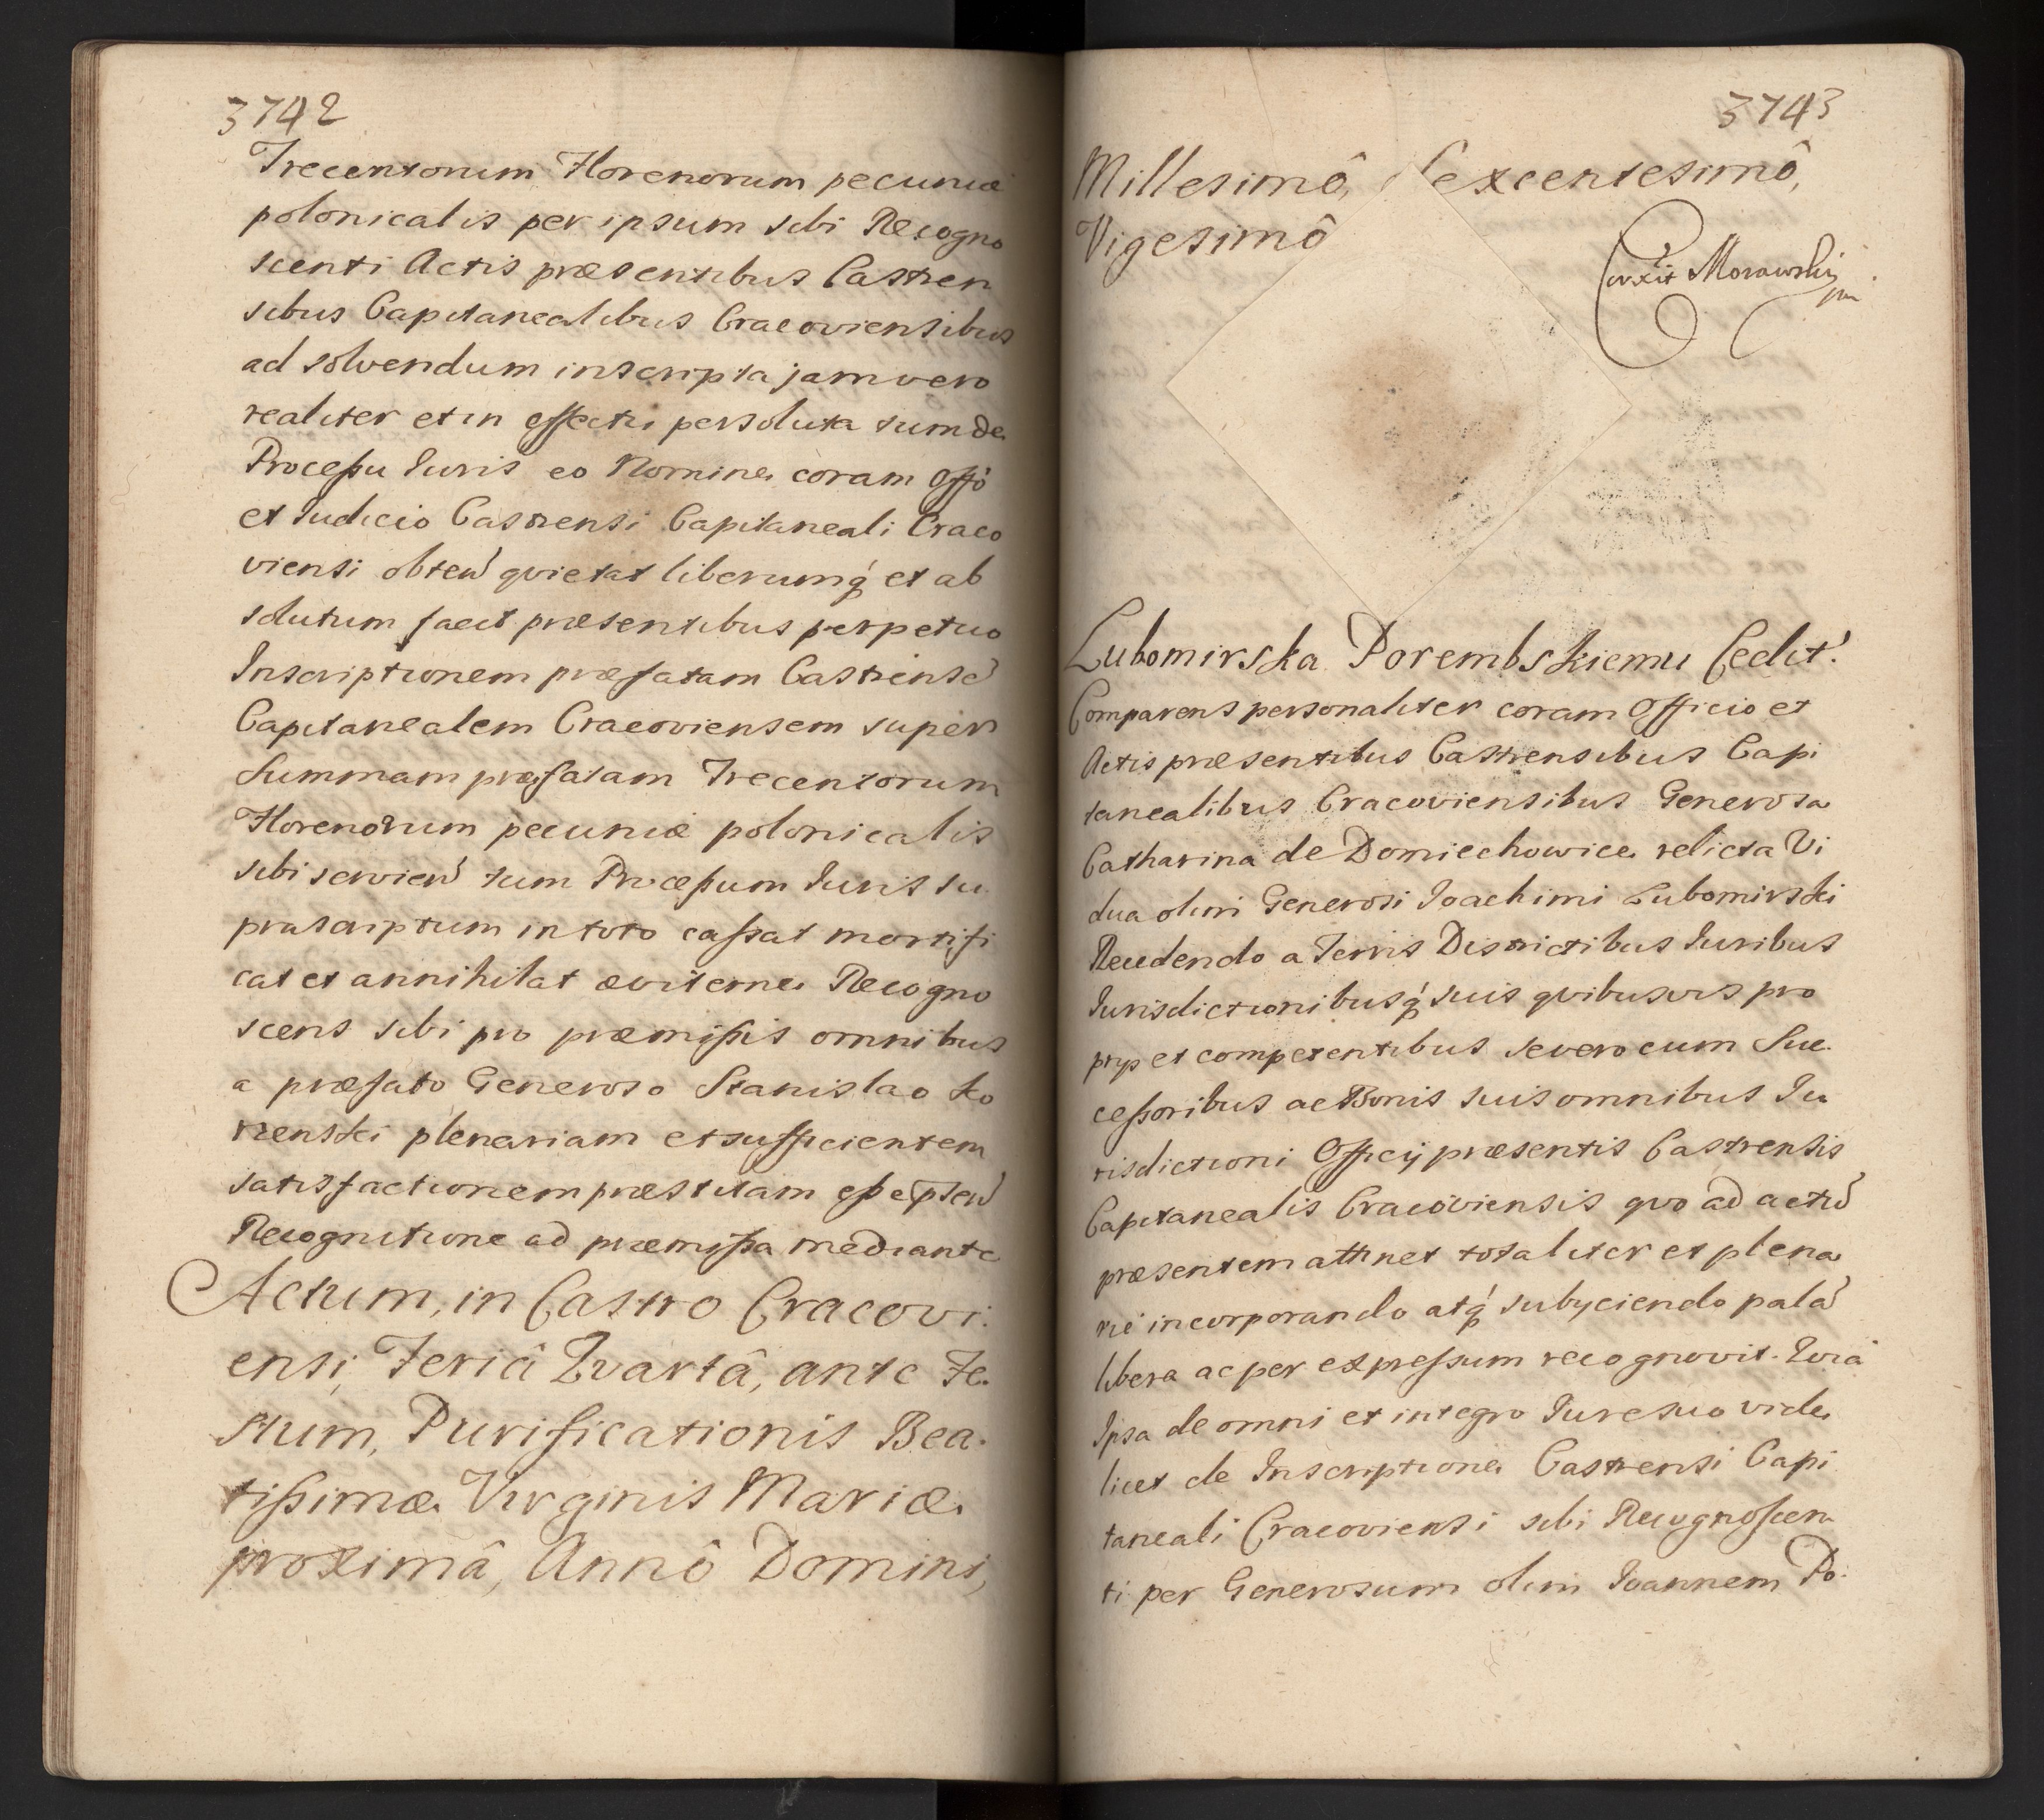 3742
Trecentorum Florenorum pecuniæ
polonicalis per ipsum sibi Recogno
scenti Actis præsentibus Castren
sibus Capitanealibus Cracoviensibus
ad solvendum inscripta jam vero
realiter et in effectu persoluta tum de
Processu Iuris eo Nomine coram Offo
et Iudicio Castrensi Capitaneali Craco
viensi obten̄ qvietat liberumq́ et ab
solutum facit præsentibus perpetuo
Inscriptionem præfatam Castrensē
Capitanealem Cracoviensem super
Summam præfatam Trecentorum
Florenorum pecuniæ polonicalis
sibi servien̄ tum Processum Iuris su
prascriptum in toto cassat mortifi
cat et annihilat æviterne Recogno
scens sibi pro præmissis omnibus
a præfato Generoso Stanislao Ko
rienski plenariam et sufficientem
satisfactionem præstitam esse p̄sen̄
Recognitione ad præmissa mediante
Actum, in Castro Cracovi.
ensi, Feriâ Qvartâ, ante Fe.
stum, Purificationis Bea.
tissimæ Virginis Mariæ
proximâ, Annô Domini,
3743
Millesimô, Sexcentesimô,
Vigesimô
Corrxit Morawski
mp
Lubomirska Porembskiemu Cedit.
Comparens personaliter coram Officio et
Actis præsentibus Castrensibus Capi
tanealibus Cracoviensibus Generosa
Catharina de Domiechowice relicta Vi
dua olim Generosi Ioachimi Lubomirski
Recedendo a Terris Districtibus Iuribus
Iurisdictionibusq́ suis qvibusvis pro
prys et competentibus se vero cum Suc.
cessoribus ac Bonis suis omnibus Iu
risdictioni Officij præsentis Castrensis
Capitanealis Cracoviensis qvo ad actū
præsentem attinet totaliter et plena
rie incorporando atq́ subyciendo palā
libere ac per expressum recognovit. Qvia
Ipsa de omni et integro Iure suo vide
licet de Inscriptione Castrensi Capi
taneali Cracoviensi sibi Recognoscen
ti per Generosum olim Ioannem Po.